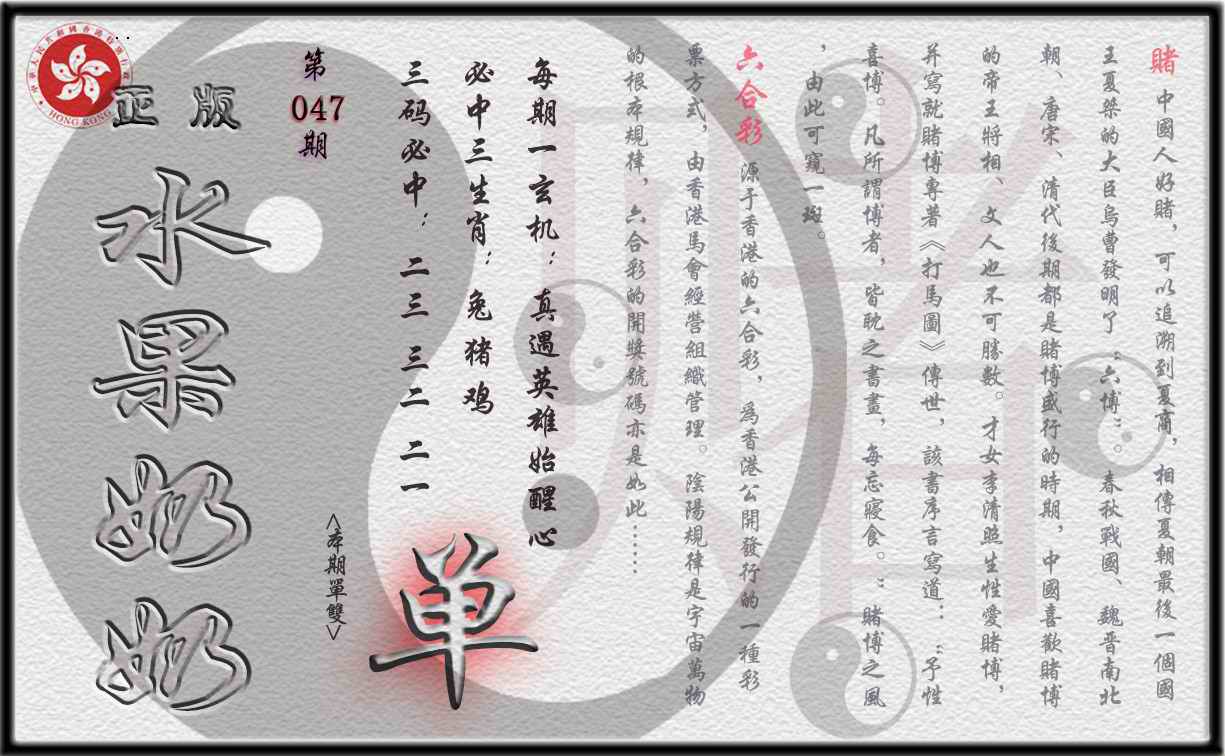 賭 中國人好賭，可以追溯到夏商，相傳夏朝最後一個國
王夏桀的大臣烏曹發明了“六博”。春秋戰國、魏晋南北
朝、唐宋、清代後期都是賭博盛行的時期，中國喜歡賭博
的帝王將相、文人也不可勝數。才女李清照生性愛賭博，
并寫就賭博專著《打馬圖》傳世，該書序言寫道：：“予性
喜博。凡所謂博者，皆耽之書晝，每忘寢食。”賭博之風
，由此可窺一斑。
六合彩 源于香港的六合彩，爲香港公開發行的一種彩
票方式，由香港馬會經營組織管理。陰陽規律是宇宙萬物
的根本規律，六合彩的開獎號碼亦是如此……
每期一玄机：真遇英雄始醒心
必中三生肖：兔猪鸡
三码必中：二三 三二 二一
单
<本期單雙>
第
047
期
正版
水果奶奶
中華人民共和國香港特別行政區
HONG KONG